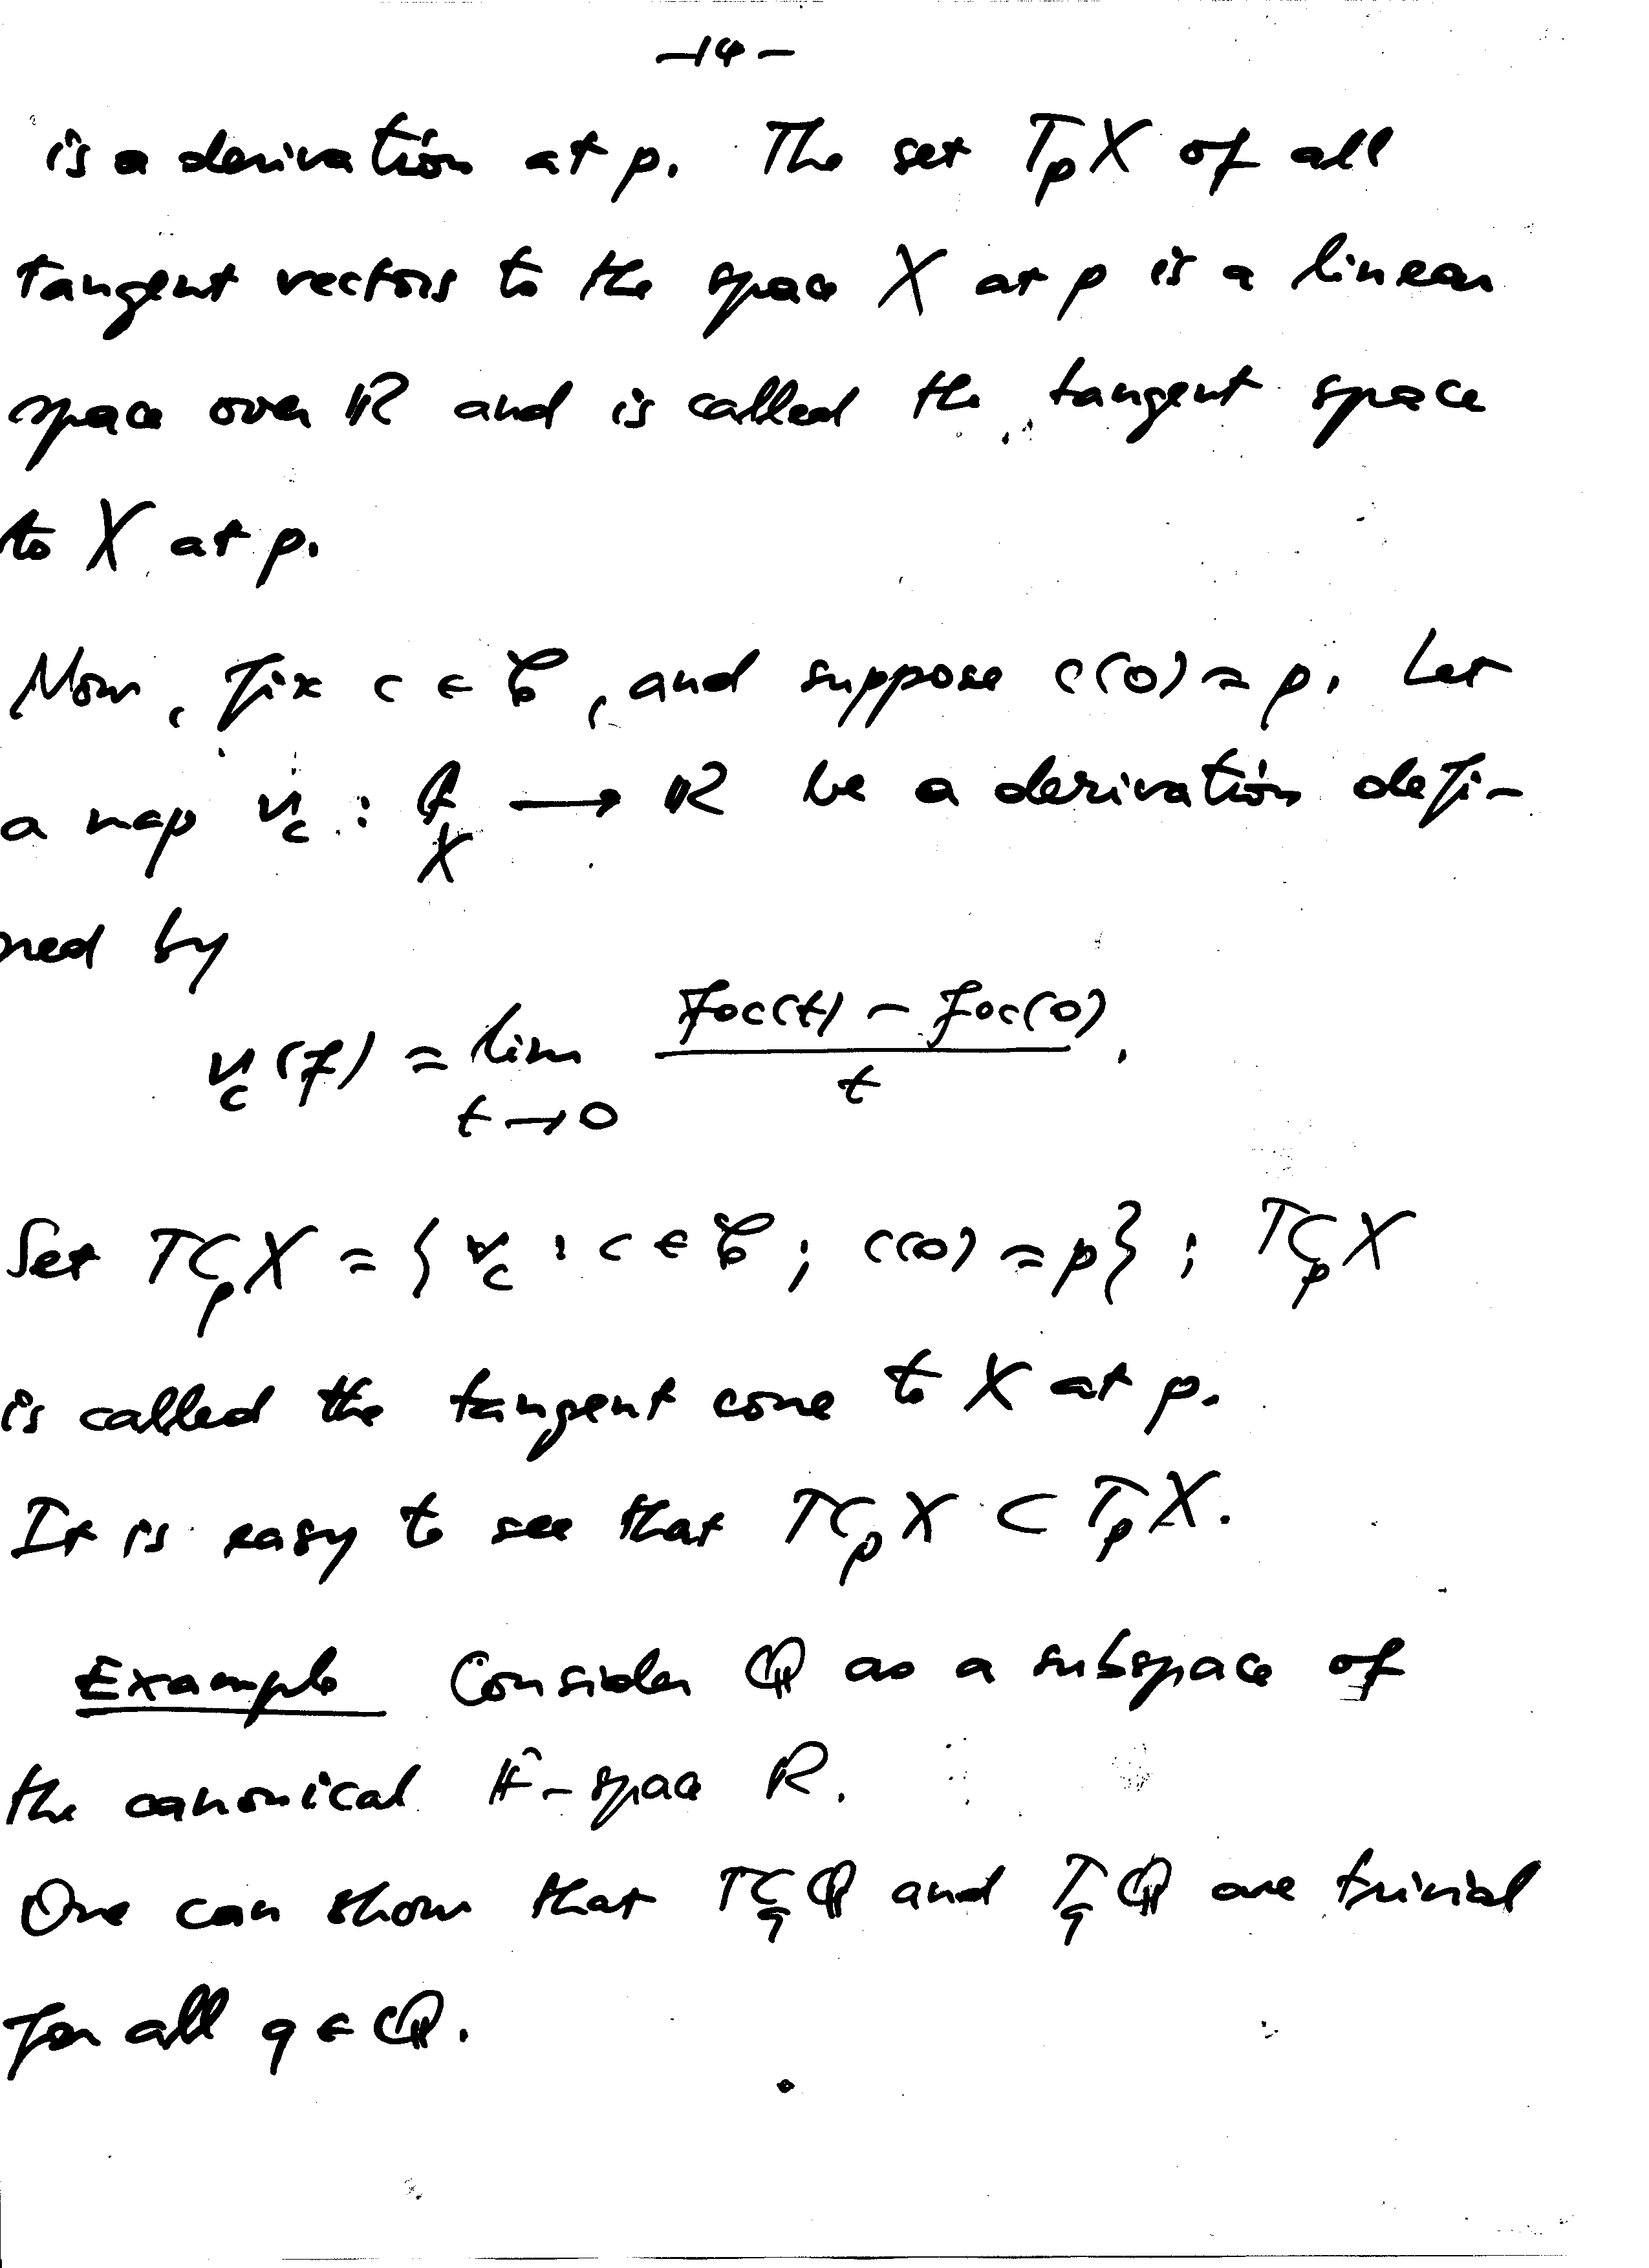 -14-
is a derivation at p. The set TpX of all
tangent vectors to the space X at p is a linear
space over ℝ and is called the tangent space
to X at p.
Now, fix c ∈ 𝒞, and suppose c(0) = p. Let
a map v_c : A_X → ℝ be a derivation defi-
ned by
v_c(f) = lim_{t→0} (f∘c(t) - f∘c(0)) / t.
Set TC_pX = { v_c : c ∈ 𝒞 ; c(0) = p } ; TC_pX
is called the tangent cone to X at p.
It is easy to see that TC_pX ⊂ T_pX.
Example Consider ℚ as a subspace of
the canonical -space R.
One can show that TC_qℚ and T_qℚ are trivial
for all q ∈ ℚ.